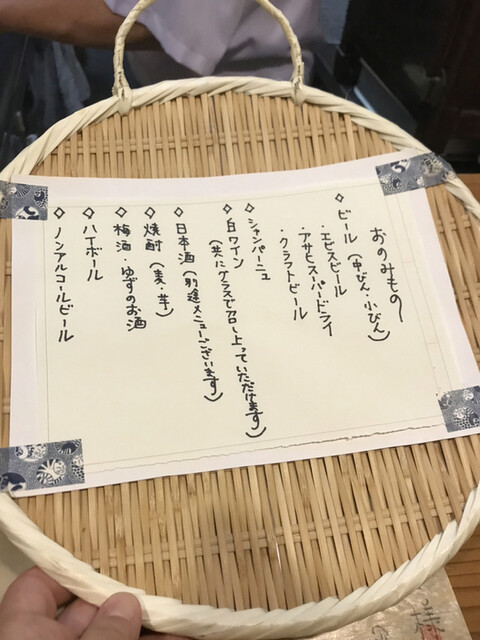 おのみもの
◇ビール（中びん・小びん）
・エビスビール
・アサヒスーパードライ
・クラフトビール
◇シャンパーニュ
◇白ワイン
（共にグラスで召し上っていただけます）
◇日本酒（別途メニューございます）
◇焼酎（麦・芋）
◇梅酒・ゆずのお酒
◇ハイボール
◇ノンアルコールビール